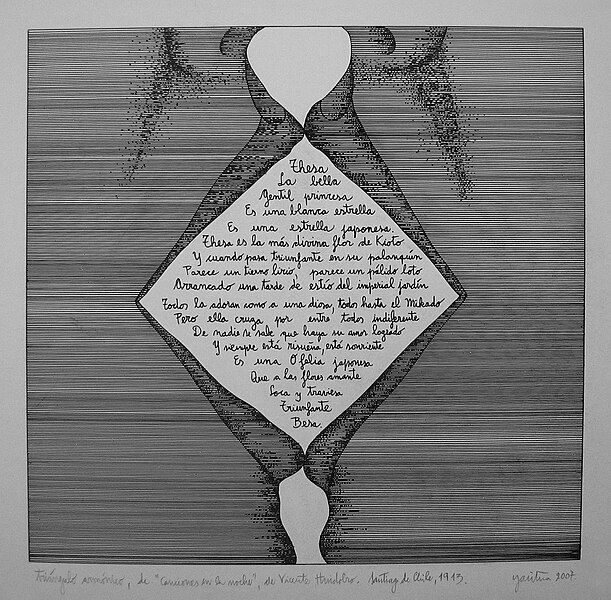 Thesa
La bella
Gentil princesa
Es una blanca estrella
Es una estrella japonesa.
Thesa es la más divina flor de Kioto
Y cuando pasa triunfante en su palanquín
Parece un tierno lirio, parece un pálido loto
Arrancado una tarde de estío del imperial jardín
Todos la adoran como a una diosa, todos hasta el Mikado
Pero ella cruza por entre todos indiferente
De nadie se sabe que haya su amor logrado
Y siempre está risueña, está sonriente
Es una Ofelia japonesa
Que a las flores amante
Loca y traviesa
Triunfante
Besa.
Triángulo armónico, de "Canciones en la noche", de Vicente Huidobro. Santiago de Chile, 1913. 2007.